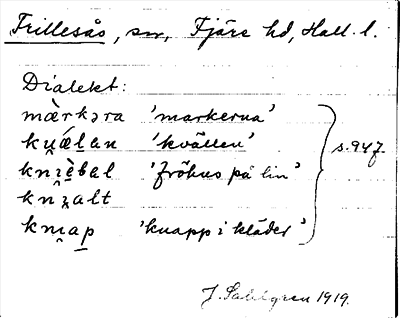 Frillesås, sn, Fjäre hd, Hall. l.
Dialekt:
mὰrkəra 'markerna'
ku̯ǽlan 'kvällen'
knɪèbəl 'fröhus på lin'
kmap 'knapp i kläder'
s. 947.
J. Sahlgren 1919.